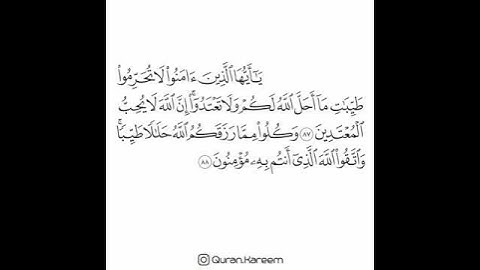 يَـٰٓأَيُّهَا ٱلَّذِينَ ءَامَنُوا۟ لَا تُحَرِّمُوا۟
طَيِّبَـٰتِ مَآ أَحَلَّ ٱللَّهُ لَكُمْ وَلَا تَعْتَدُوٓا۟ ۚ إِنَّ ٱللَّهَ لَا يُحِبُّ
ٱلْمُعْتَدِينَ ٨٧ وَكُلُوا۟ مِمَّا رَزَقَكُمُ ٱللَّهُ حَلَـٰلًا طَيِّبًا ۚ
وَٱتَّقُوا۟ ٱللَّهَ ٱلَّذِىٓ أَنتُم بِهِۦ مُؤْمِنُونَ ٨٨
Quran.Kareem